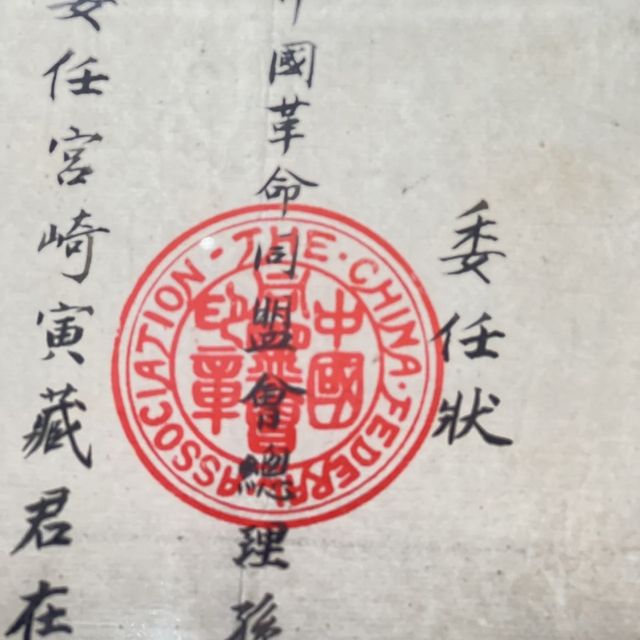 委任狀
中國革命同盟會總理孫
委任宮崎寅藏君在
THE·CHINA·FEDERAL ASSOCIATION·
中國
印章